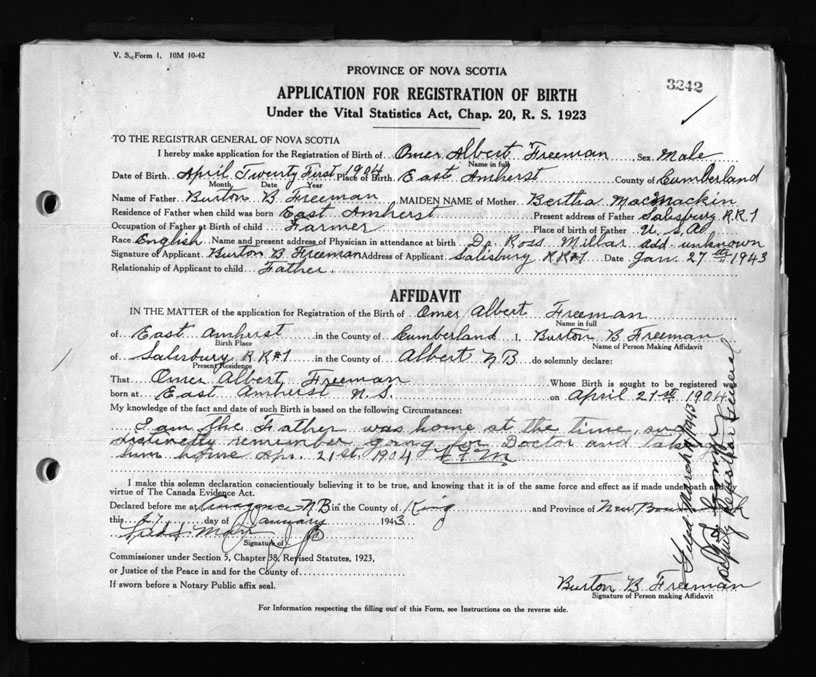 V. S., Form 1. 10M 10-42
PROVINCE OF NOVA SCOTIA
3242
APPLICATION FOR REGISTRATION OF BIRTH
Under the Vital Statistics Act, Chap. 20, R. S. 1923
TO THE REGISTRAR GENERAL OF NOVA SCOTIA
I hereby make application for the Registration of Birth of Omer Albert Freeman Sex Male
Name in full
Date of Birth April Twenty First 1904 Place of Birth East Amherst County of Cumberland
Month Date Year
Name of Father Burton B Freeman MAIDEN NAME of Mother Bertha MacMackin
Residence of Father when child was born East Amherst Present address of Father Salisbury R.R.1
Occupation of Father at Birth of child Farmer Place of birth of Father U.S.A.
Race English Name and present address of Physician in attendance at birth Dr. Ross Millar add unknown
Signature of Applicant Burton B Freeman Address of Applicant Salisbury RR#1 Date Jan. 27th 1943
Relationship of Applicant to child Father
AFFIDAVIT
IN THE MATTER of the application for Registration of the Birth of Omer Albert Freeman
Name in full
of East Amherst in the County of Cumberland I, Burton B Freeman
Birth Place Name of Person Making Affidavit
of Salisbury R.R#1 in the County of Albert NB do solemnly declare:
Present Residence
That Omer Albert Freeman Whose Birth is sought to be registered was
born at East Amherst N.S. on April 21st 1904
My knowledge of the fact and date of such Birth is based on the following Circumstances:
I am the Father was home at the time, and
distinctly remember going for Doctor and taking
home Apr. 21st. 1904
I make this solemn declaration conscientiously believing it to be true, and knowing that it is of the same force and effect as if made under oath and by
virtue of The Canada Evidence Act.
Declared before me at NB in the County of King and Province of New Brunswick
this 27 day of January 1943
Signature of
Commissioner under Section 5, Chapter 38, Revised Statutes, 1923,
or Justice of the Peace in and for the County of
If sworn before a Notary Public affix seal.
Burton B Freeman
Signature of Person making Affidavit
For Information respecting the filling out of this Form, see Instructions on the reverse side.
Filed March 1943
Deputy Registrar General